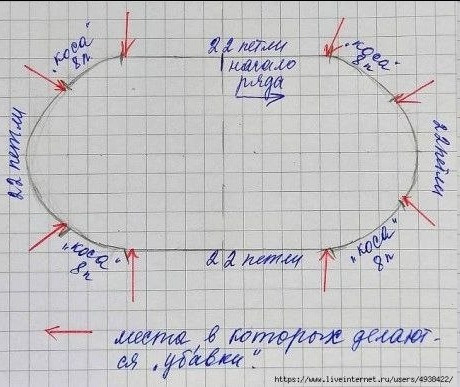 "коса"
8п
22 петли
начало
ряда
"коса"
8п
22 петли
22 петли
"коса"
8п
22 петли
"коса"
8п
места в которых делают-
ся "убавки".
https://www.liveinternet.ru/users/4938422/